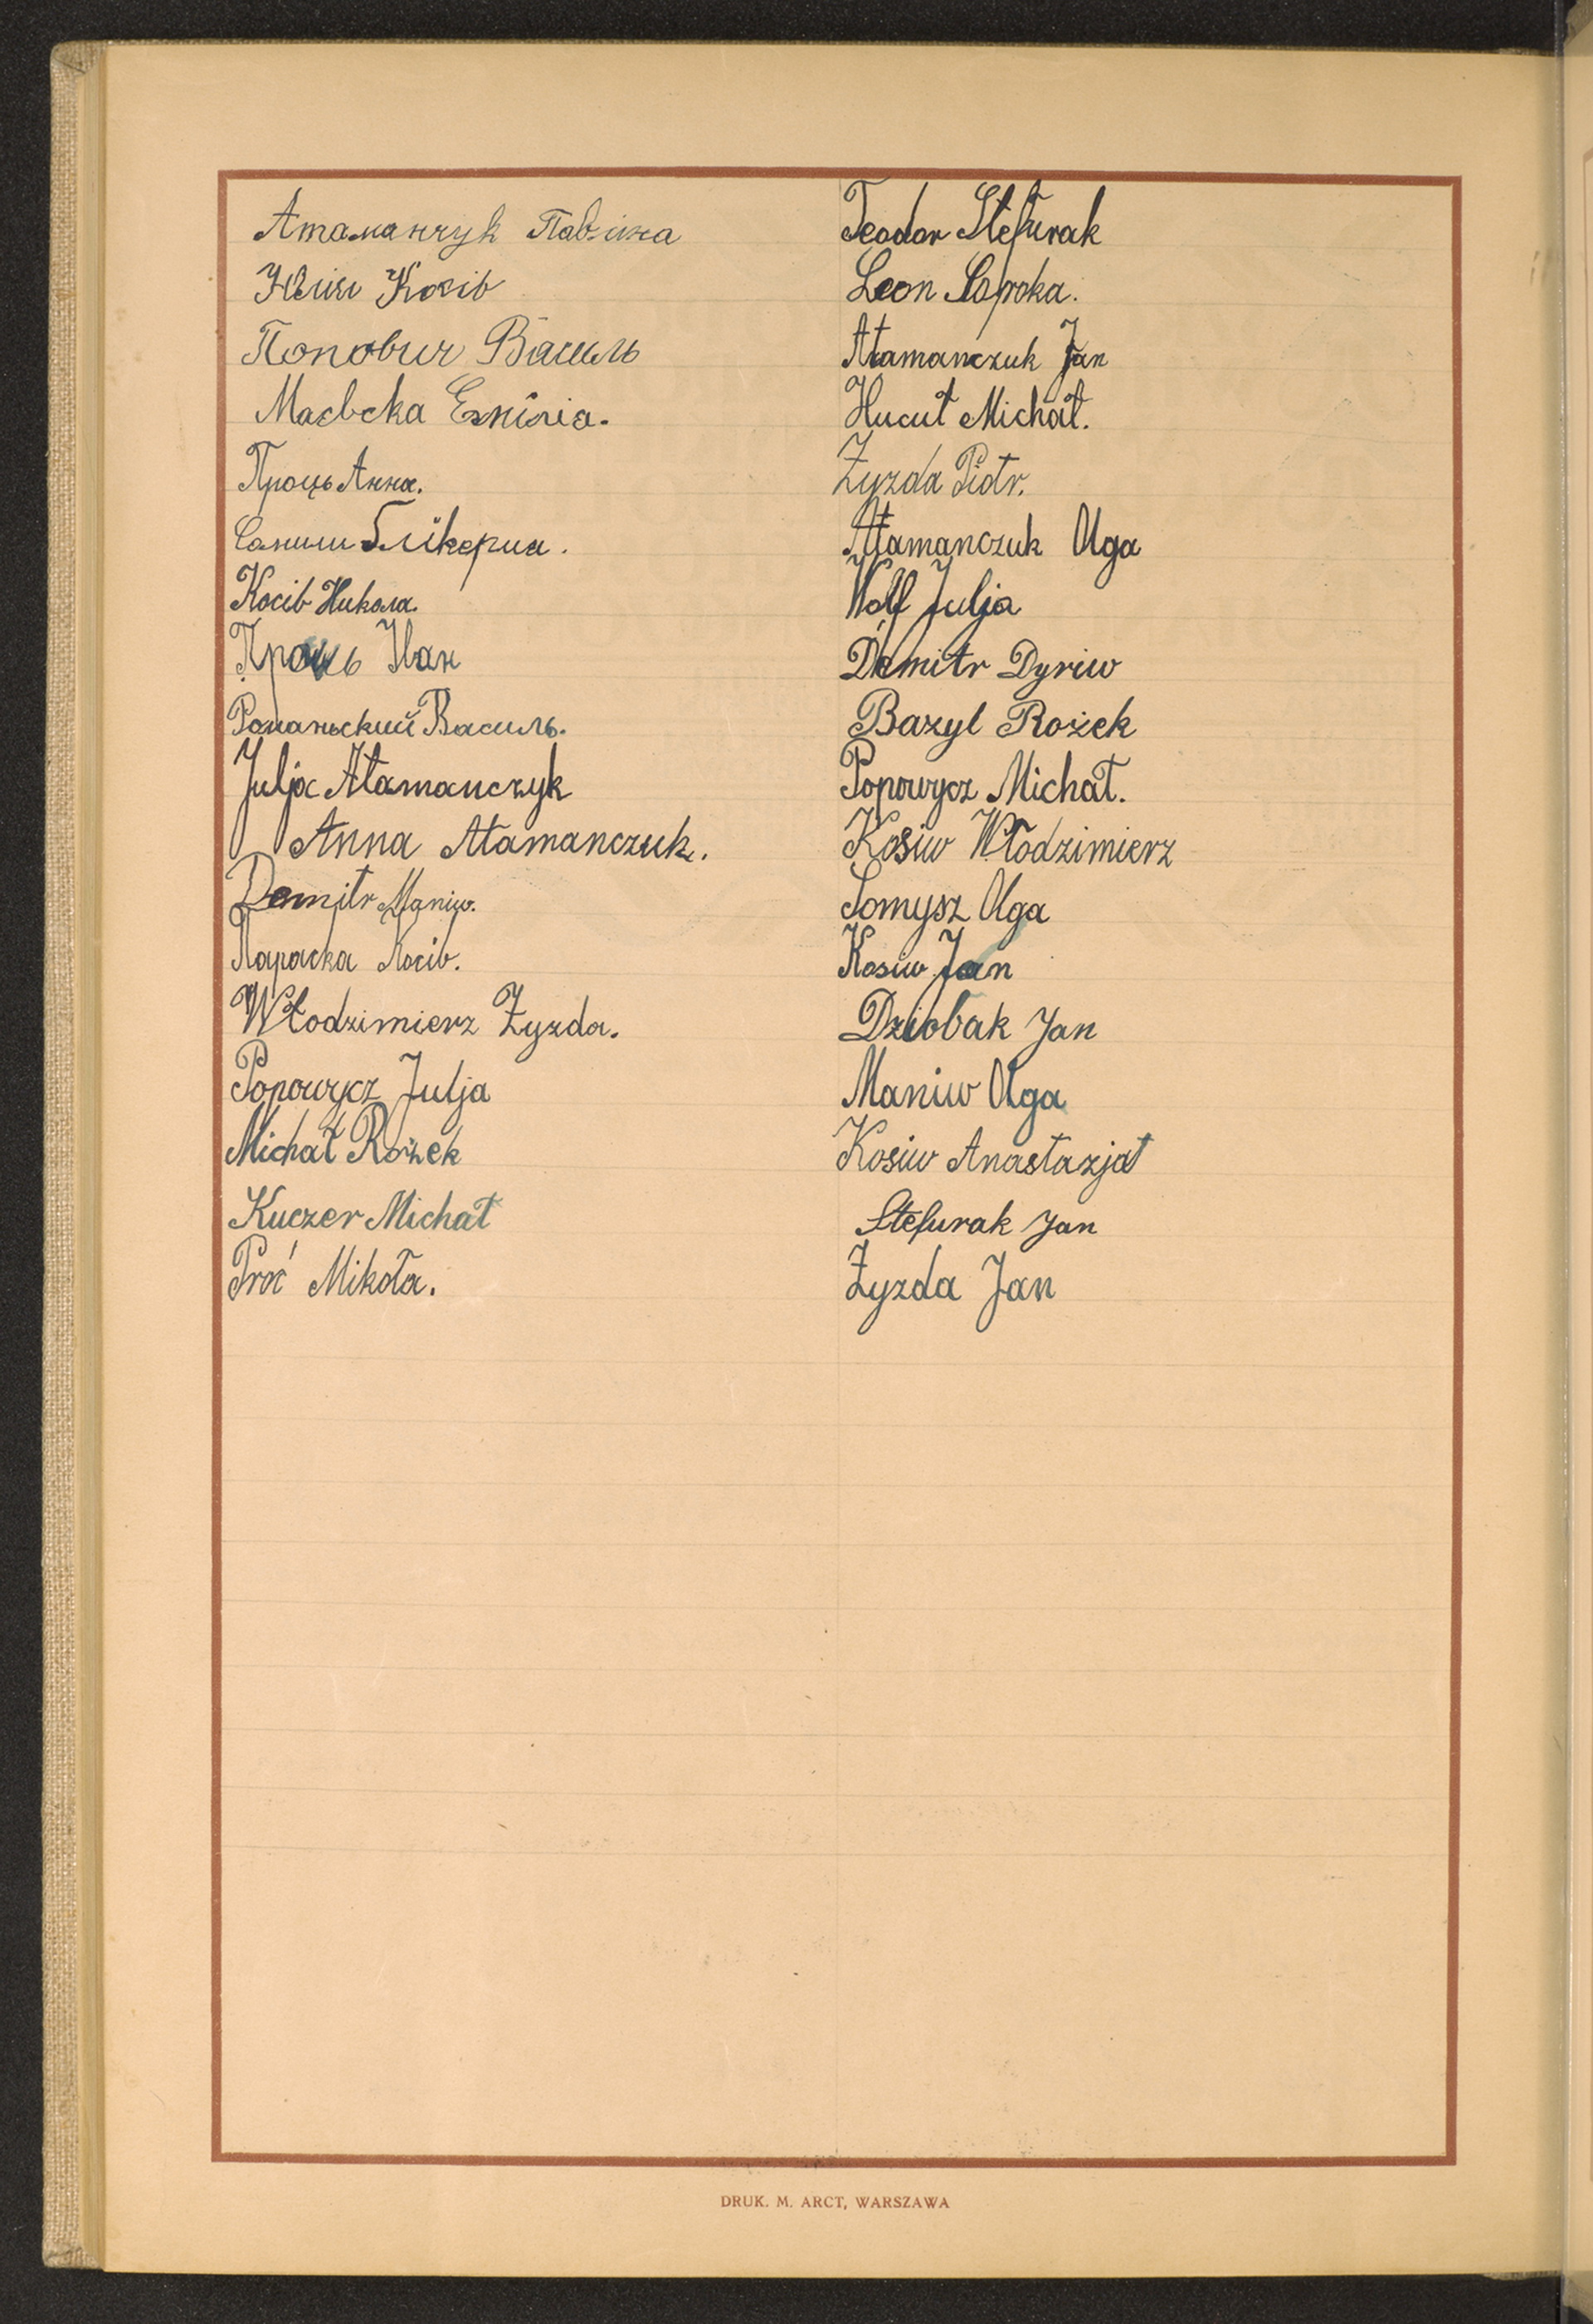 Атаманчук Павліна
Юлія Косів
Попович Василь
Маєвска Емілія.
Проць Анна.
Глікерия.
Косів Никола.
Проць Іван
Романьский Василь.
Julja Atamanczyk
Anna Atamanczuk.
Demitr Maniw.
Параска Косів.
Włodzimierz Żyzda.
Popowycz Julja
Michał Rożek
Kuczer Michał
Proć Mikoła.
Teodor Stefurak
Leon Sapoka.
Atamanczuk Jan
Hucuł Michał.
Żyzda Piotr.
Atamanczuk Olga
Wolf Julja
Demitr Dyriw
Bazyl Rożek
Popowycz Michał.
Kosiw Włodzimierz
Tomysz Olga
Kosiw Jan
Dziobak Jan
Maniw Olga
Kosiw Anastazja
Stefurak Jan
Żyzda Jan
DRUK. M. ARCT, WARSZAWA